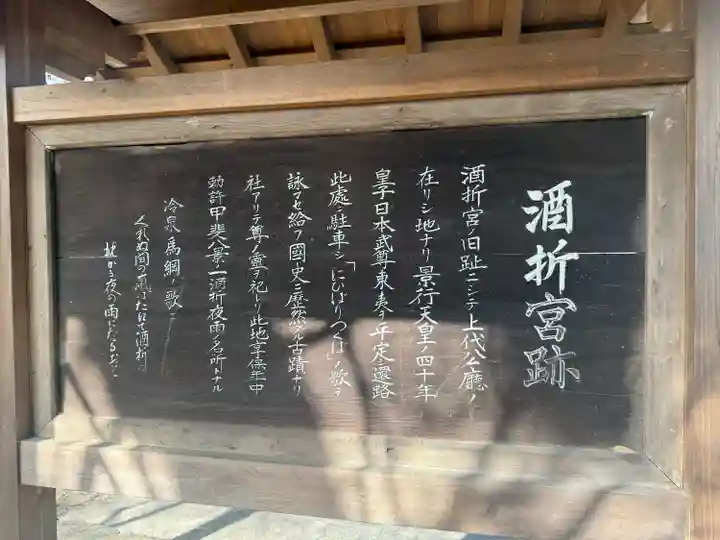 酒折宮跡
酒折宮ノ旧趾ニシテ上代公廳ノ
在リシ地ナリ景行天皇ノ四十年
皇子日本武尊東夷ヲ平定還路
此處ニ駐車シ「にひばりつくば」ノ歌ヲ
詠マセ給フ國史ニ歴然タル古蹟ナリ
社アリテ尊ノ靈ヲ祀レリ此地享保年中
勅許甲斐八景ノ一酒折夜雨ノ名所トナル
冷泉為綱ノ歌ニ
くれぬ間の嵐は
酒折
夜の雨